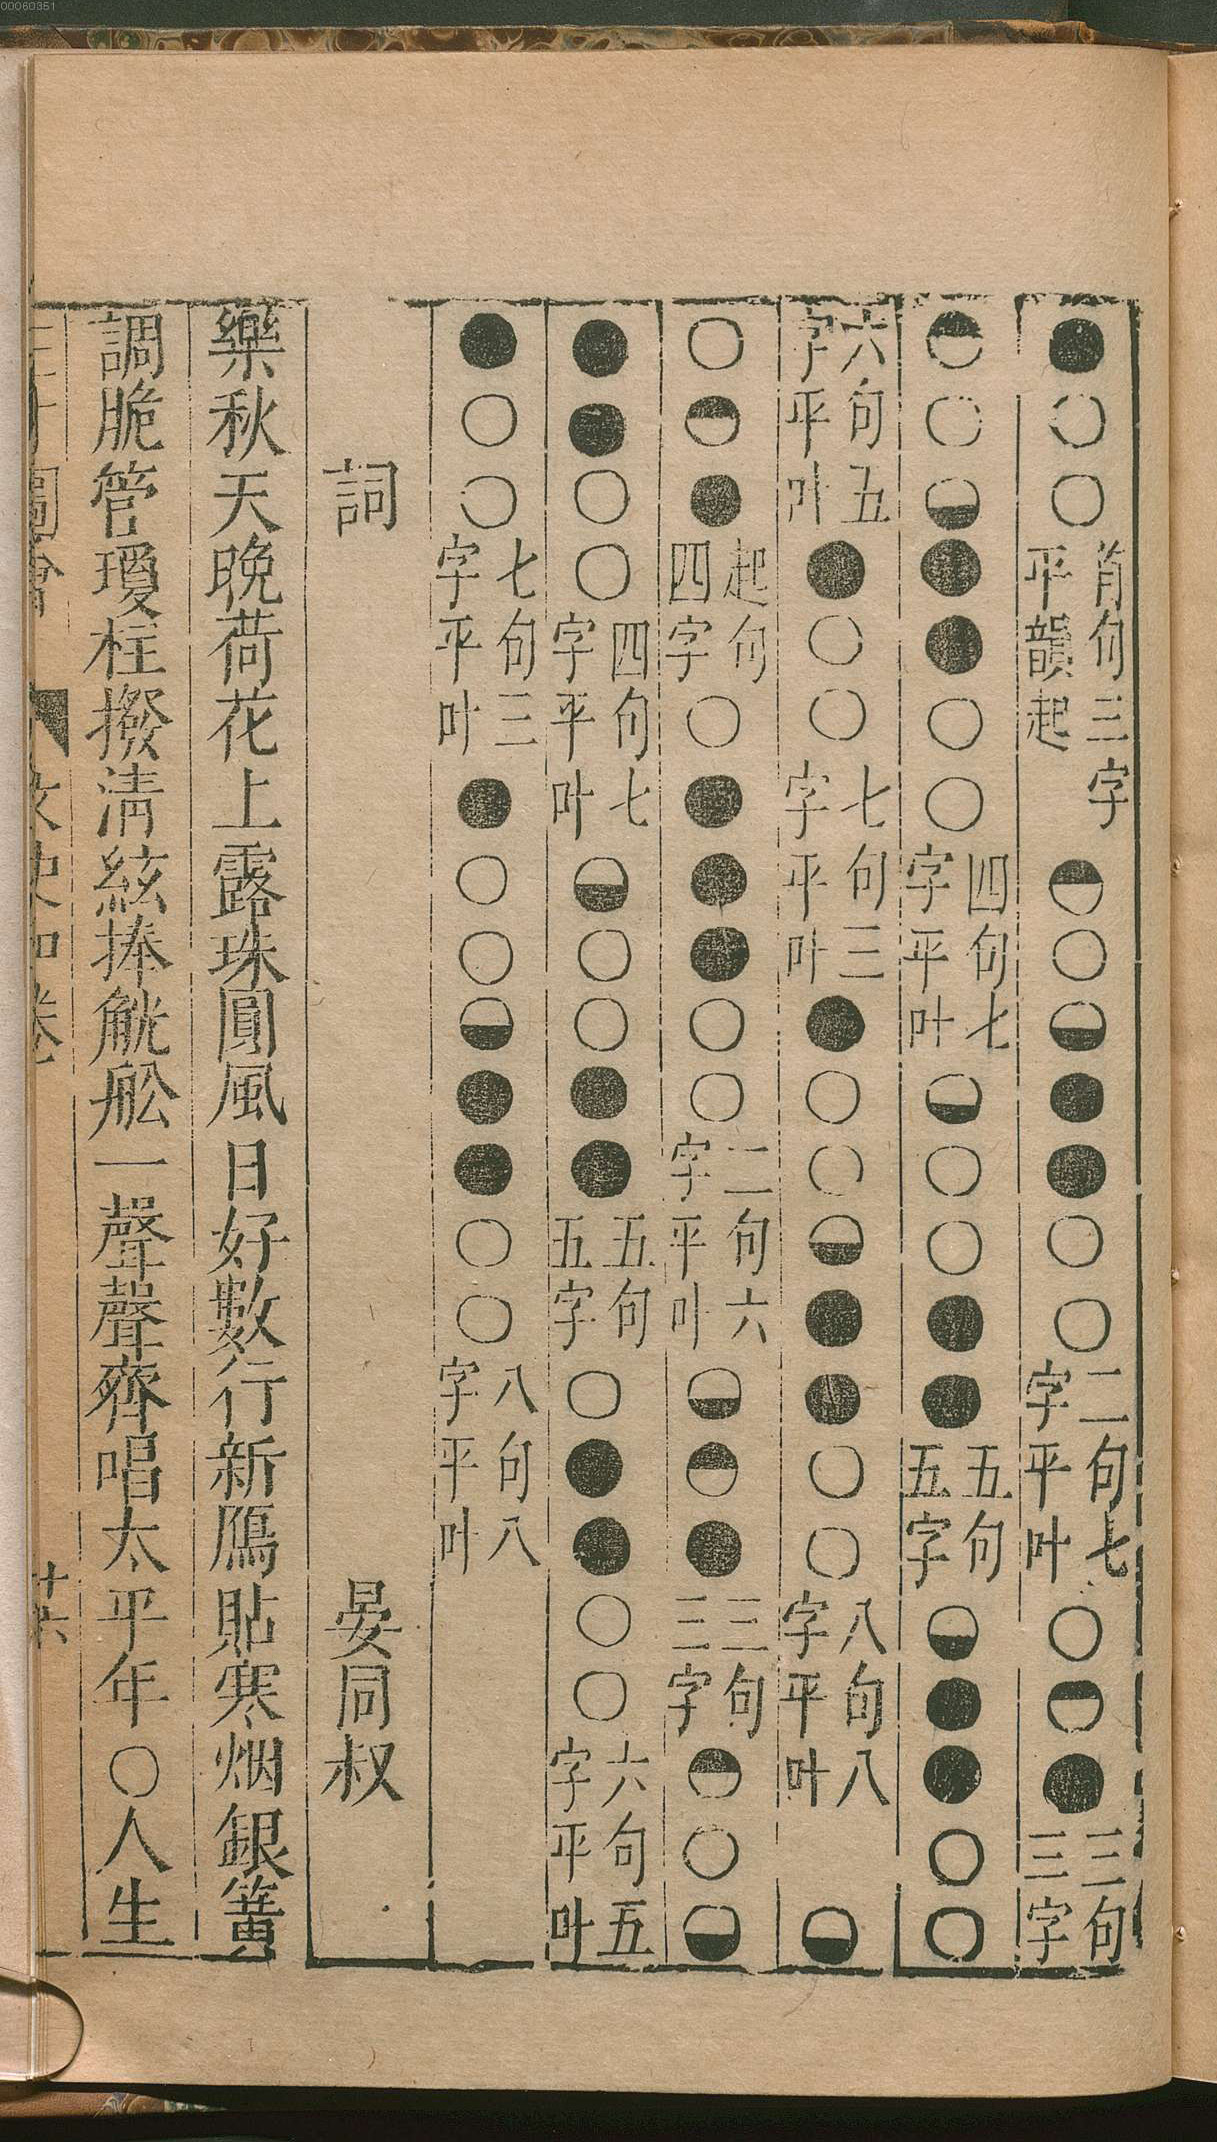 00060351
●○○首句三字平韻起◓○◒●●○○二句七字平叶○◓●三句三字
◓○◒●●○○四句七字平叶◒○○●●五句五字◒●●○○
六句五字平叶●○○七句三字平叶●○○◒●●○○八句八字平叶◒
○◓●起句四字○●●●○○二句六字平叶◒◓●三句三字◓○◒
●●○○四句七字平叶◒○○●●五句五字○●●○○六句五字平叶
●○○七句三字平叶●○○◒●●○○八句八字平叶
詞 晏同叔
樂秋天晚荷花上露珠圓風日好數行新鴈貼寒烟銀簧
調脆管瓊柱撥清絃捧觥舩一聲聲齊唱太平年○人生
圖會 文史 卷 廿六